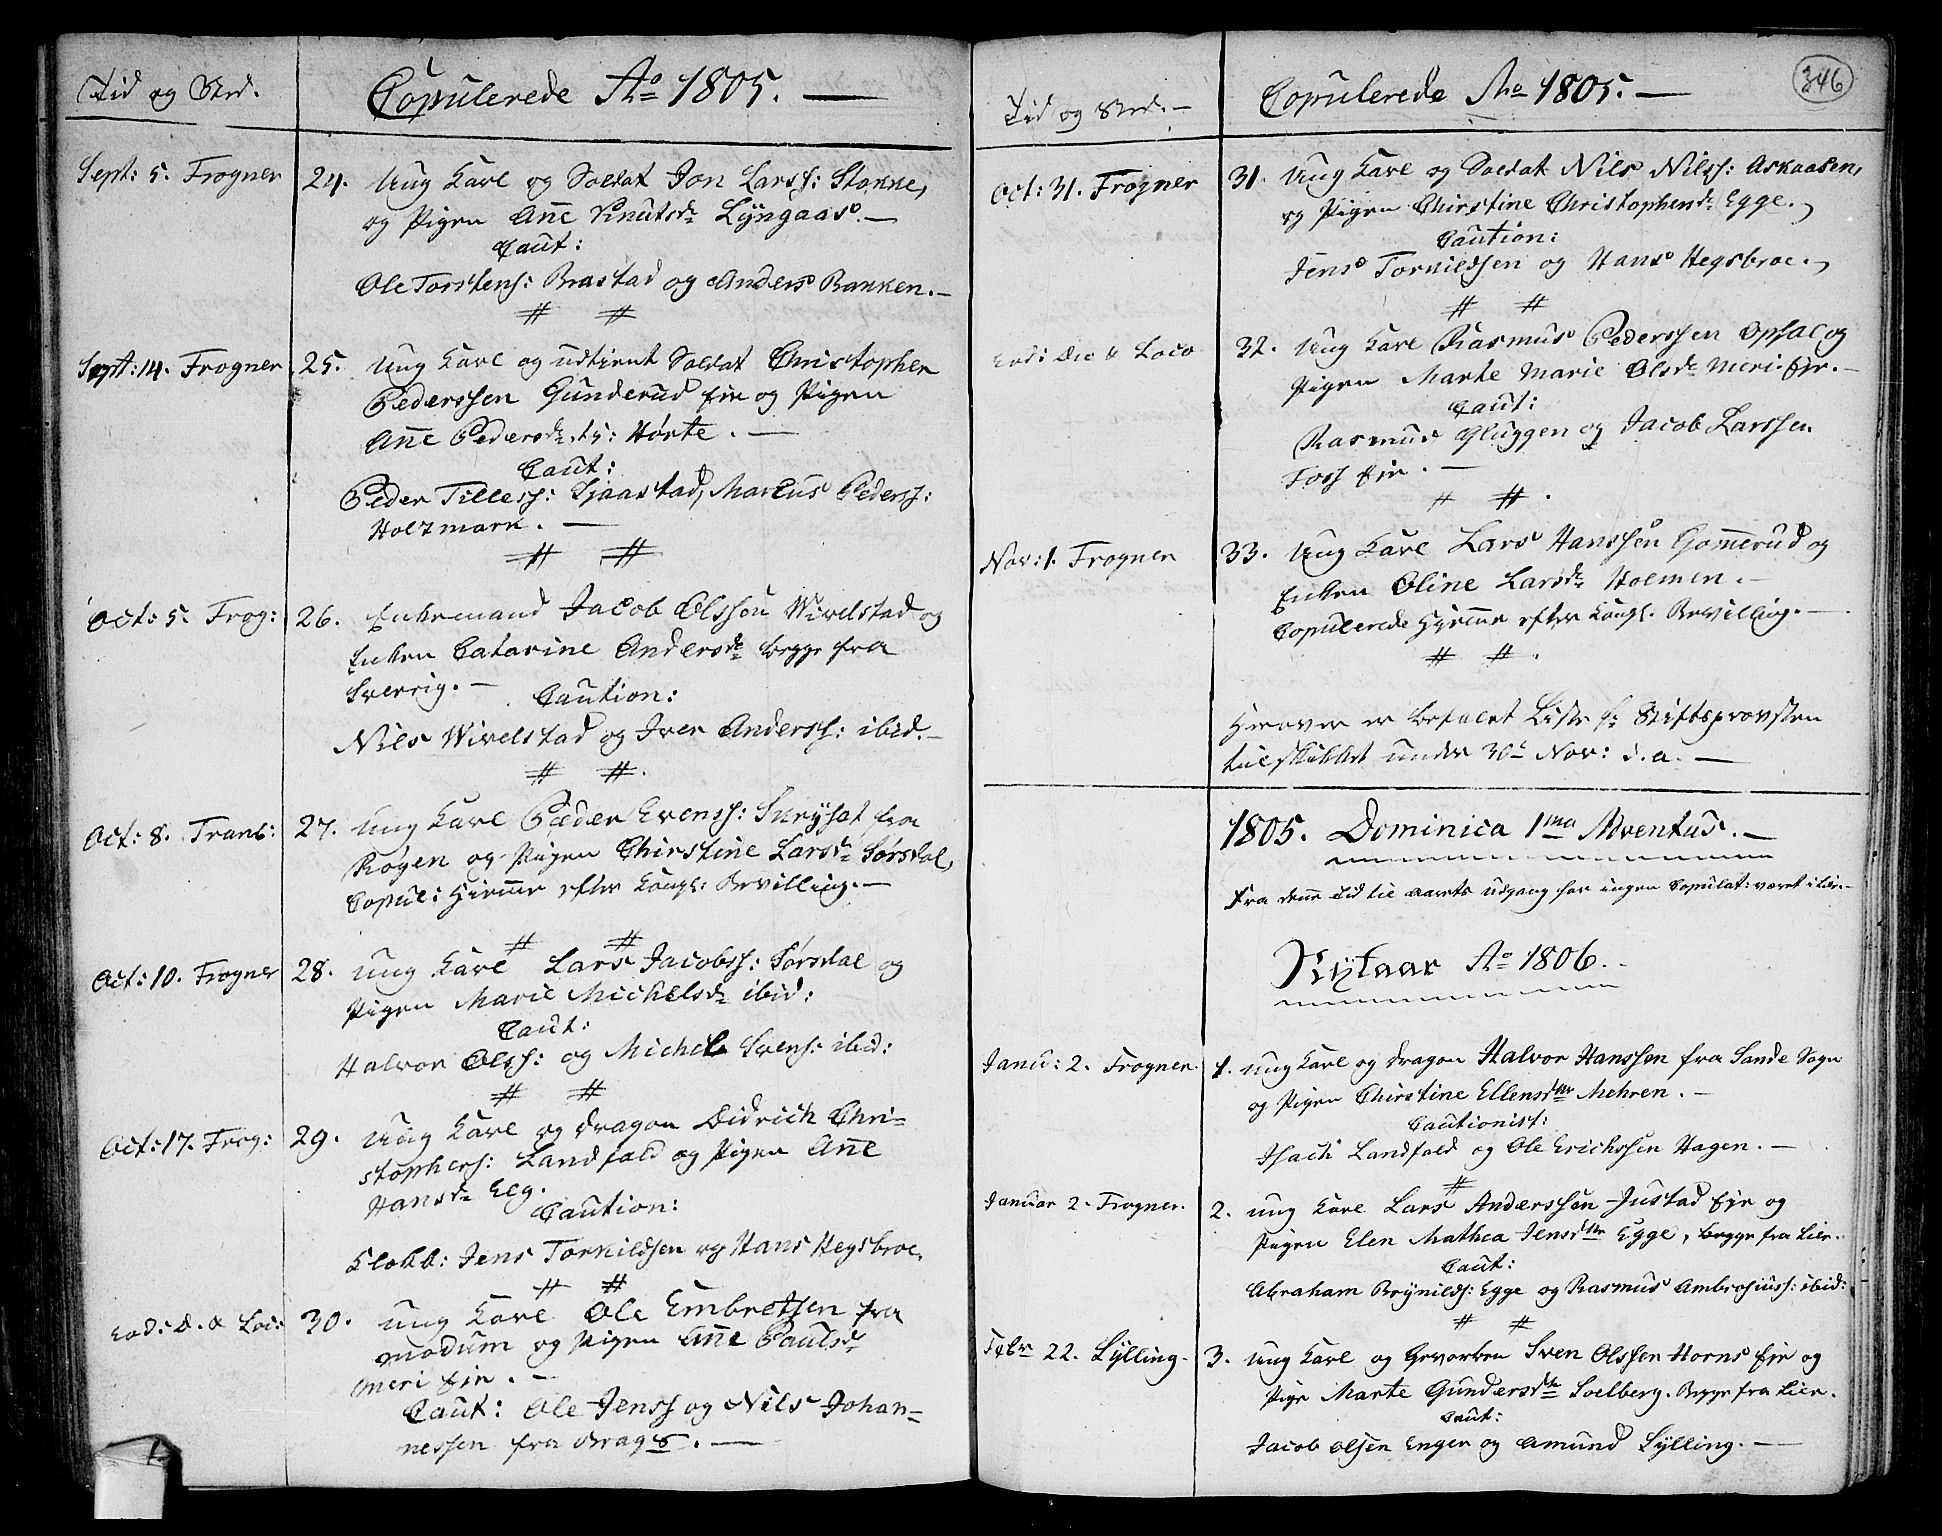 Tid og Sted.
Copulerede Ao 1805. —
Sept: 5. Frogner
24. Ung Karl og Soldat Jon Larss: Stokke,
og Pigen Añe Knutsdr Lyngaas. —
Caut:
Ole Torstens: Brastad og Anders Bakken. —
# #
Sept: 14. Frogner
25. Ung Karl og udtient Soldat Christopher
Pederssen Gunderud Eje og Pigen
Añe Pedersdr Hørte. —
Caut:
Peder Tilless: Sjaastad, Marcus Pederss:
Holtzmark. —
# #
Oct: 5. Frog:
26. Enkemand Jacob Olssen Wivelstad og
Enken Catarine Andersdr begge fra
Sverrig. —
Caution:
Nils Wivelstad og Iver Anderss: ibid. —
# #.
Oct: 8. Tranb:
27. Ung Karl Peder Evenss: fra
Røgen og Pigen Chirstine Larsdr Sørsdal,
Copul: Hiemme efter Kongl: Bevilling. —
# #
Oct: 10. Frogner
28. Ung Karl Lars Jacobss: Sørsdal og
Pigen Marie Michelsdr ibid:
Caut:
Halvor Olss: og Michel Svens: ibid:
# #
Oct: 17. Frog:
29. Ung Karl og Dragon Didrich Chri-
stophers: Landfald og Pigen Añe
Hansdr Elg.
Caution:
Klokk: Jens Torkildsen og Hans Hegsbroe,
# #
Eod: D. & Loc:
30. Ung Karl Ole Embretsen fra
Modum og Pigen Añe Paulsdr
Meri Eje. —
Caut: Ole Jenss og Nils Johan-
nessen fra Brags. —
346
Tid og Sted. —
Copulerede Ao 1805. —
Oct: 31. Frogner
31. Ung Karl og Soldat Nils Nilss: Askaasen,
og Pigen Chirstine Christophersdr Egge. ,
Caution:
Jens Torkildsen og Hans Hegsbroe. ,
# #
Eod: Die & Loco
32. Ung Karl Rasmus Pederssen Opsal og
Pigen Marte Marie Olsdr Meri Eje. —
Caut:
Rasmus Gluggen og Jacob Larssen
Foss Eje. —
# #.
Nov: 1. Frogner
33. Ung Karl Lars Hanssen Gom̃erud og
Enken Oline Larsdr Holmen. —
Copulerede Hjemme efter Kongl. Bevilling. —
# #.
Herover er befalet Liste hr Stiftsprovsten
tilskikket under 30te Nov: d. a. —
1805. Dominica 1ma Adventus. —
Fra denne Tid til Aarets udgang har ingen Copulat: været i Lier. —
Nytaar Ao 1806.
Janu: 2. Frogner.
1. Ung Karl og Dragon Halvor Hanssen fra Sande Sogn
og Pigen Chirstine Ellensdtr Mehren. —
Cautionist:
Isach Landfald og Ole Erichssen Hagen. —
#
Januar 2. Frogner.
2. Ung Karl Lars Anderssen Justad Eje og
Pigen Elen Mathea Jensdtr Egge, begge fra Lier.
Caut:
Abraham Brynilds: Egge og Rasmus Ambrosiuss: ibid:
# #
Febr 22. Sylling.
3. Ung Karl og Gevorben Sven Olssen Horns Eje og
Pige Marte Gundersdtr Solberg. Begge fra Lier.
Caut:
Jacob Olsen Enger og Amund Sylling. —